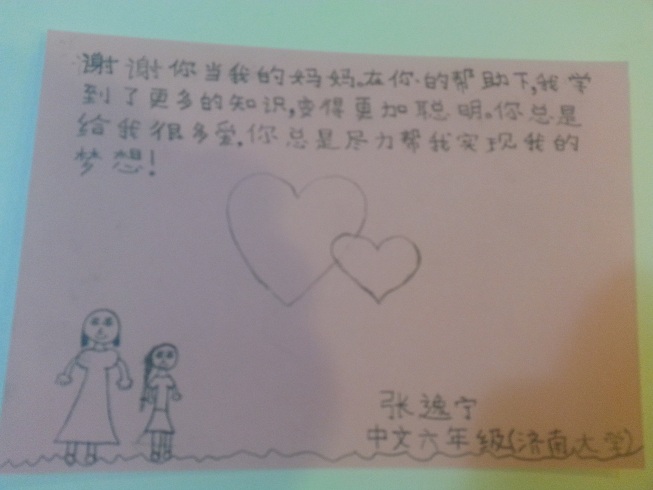 谢谢你当我的妈妈。在你的帮助下,我学
到了更多的知识,变得更加聪明。你总是
给我很多爱,你总是尽力帮我实现我的
梦想!
张逸宁
中文六年级(济南大学)